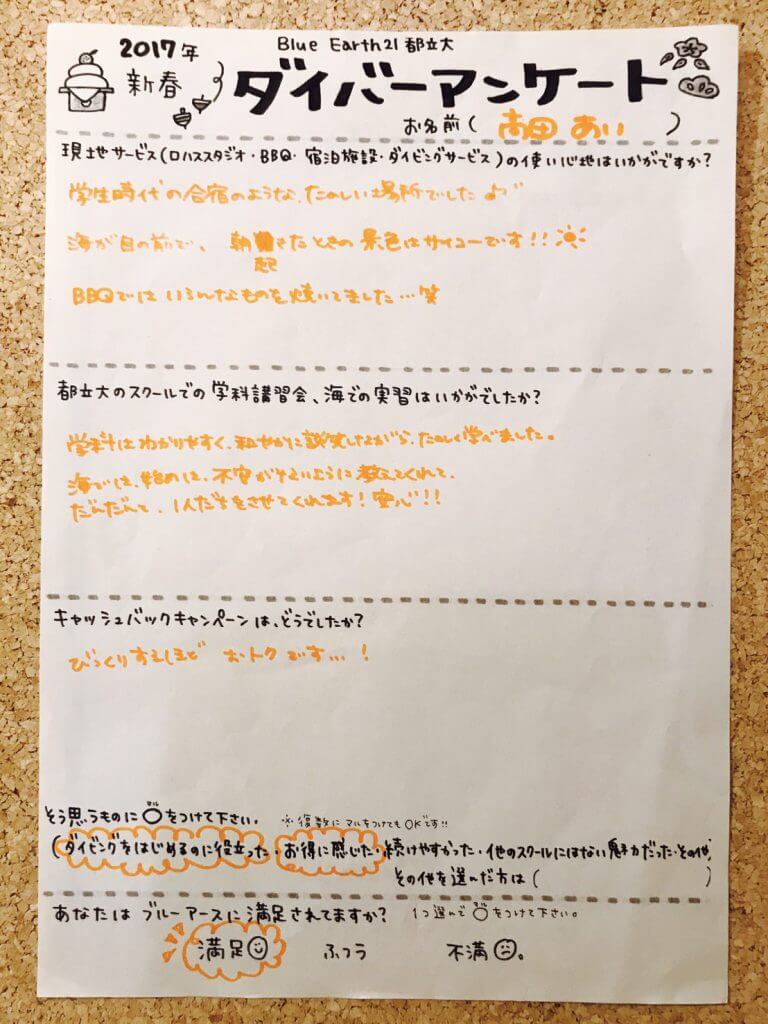 2017年
新春
Blue Earth21 都立大
ダイバーアンケート
お名前( 高田 あい )
現地サービス(ロハススタジオ・BBQ・宿泊施設・ダイビングサービス)の使い心地はいかがですか?
学生時代の合宿のような、たのしい場所でした♪
海が目の前で、朝起きたときの景色はサイコーです!!
BBQではいろんなものを焼いてました…笑
都立大のスクールでの学科講習会、海での実習はいかがでしたか?
学科はわかりやすく、和やかに談笑しながら、たのしく学べました。
海では、始めは、不安がないように教えてくれて、
だんだんと、1人だちをさせてくれます!安心!!
キャッシュバックキャンペーンは、どうでしたか?
びっくりするほど おトクです…!
そう思うものに○をつけて下さい。 ※複数にマルをつけてもOKです!!
(ダイビングをはじめるのに役立った・お得に感じた・続けやすかった・他のスクールにはない魅力だった・その他、
その他を選んだ方は( )
あなたは ブルーアースに満足されてますか? 1つ選んで○をつけて下さい。
満足 ふつう 不満。